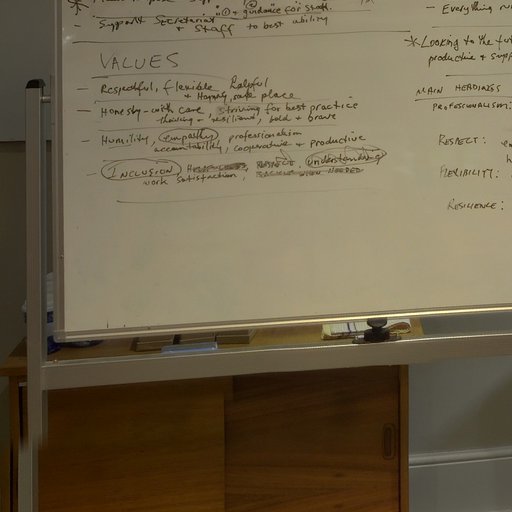 guidance for staff.
- Support Secretariat
& Staff to best ability
VALUES
- Respectful, flexible helpful
& Happy, safe place
- Honesty - with care striving for best practice
thriving - resilient, bold & brave
- Humility, empathy, professionalism
accountability, cooperative & productive
- INCLUSION RESPECT, understanding
work satisfaction,
- Everything
* Looking to the
productive &
MAIN HEADINGS
PROFESSIONALISM:
RESPECT:
FLEXIBILITY:
RESILIENCE: